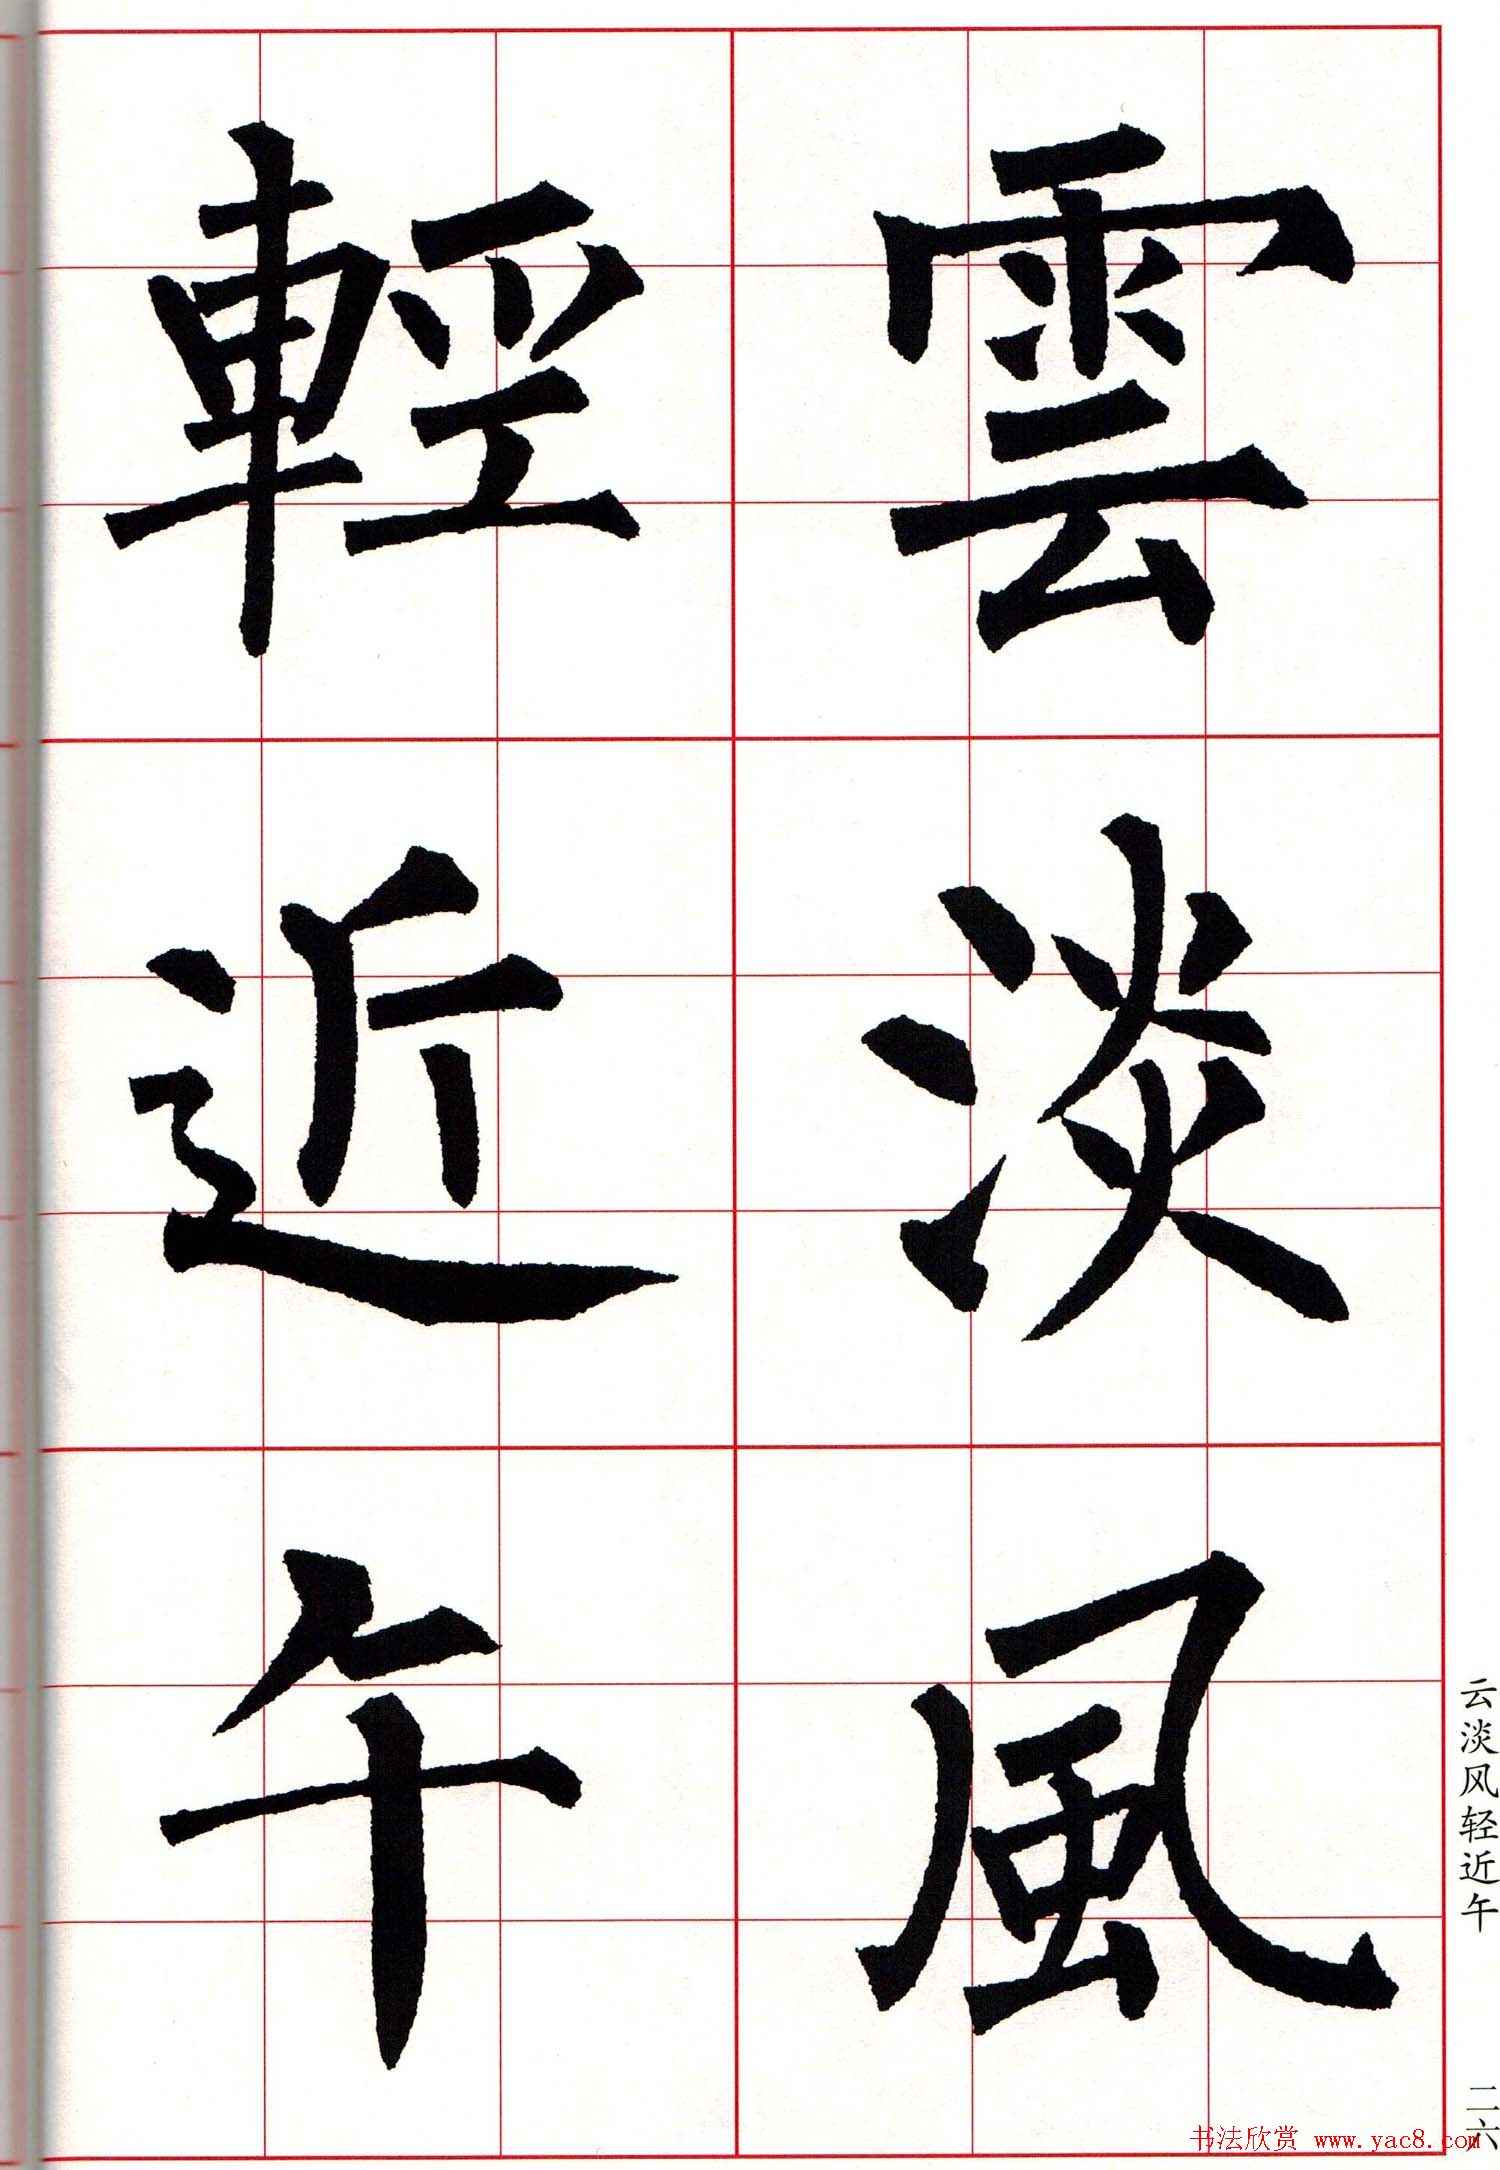 雲淡風
輕近午
云淡风轻近午
二六
书法欣赏 www.yac8.com